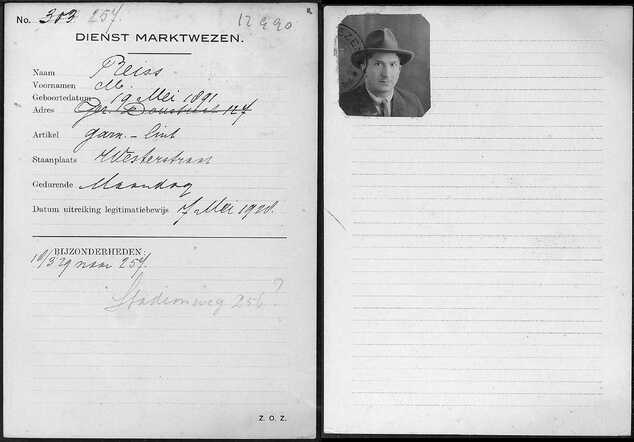 No. 303 257. 12990
DIENST MARKTWEZEN.
Naam Preiss
Voornamen M.
Geboortedatum 19 Mei 1891
Adres Gr. Doustraat 127
Artikel garn. - lint
Staanplaats Westerstraat
Gedurende Maandag
Datum uitreiking legitimatiebewijs 7 Mei 1928.
BIJZONDERHEDEN:
10/3 29 naar 257.
Stadionweg 256?
Z. O. Z.